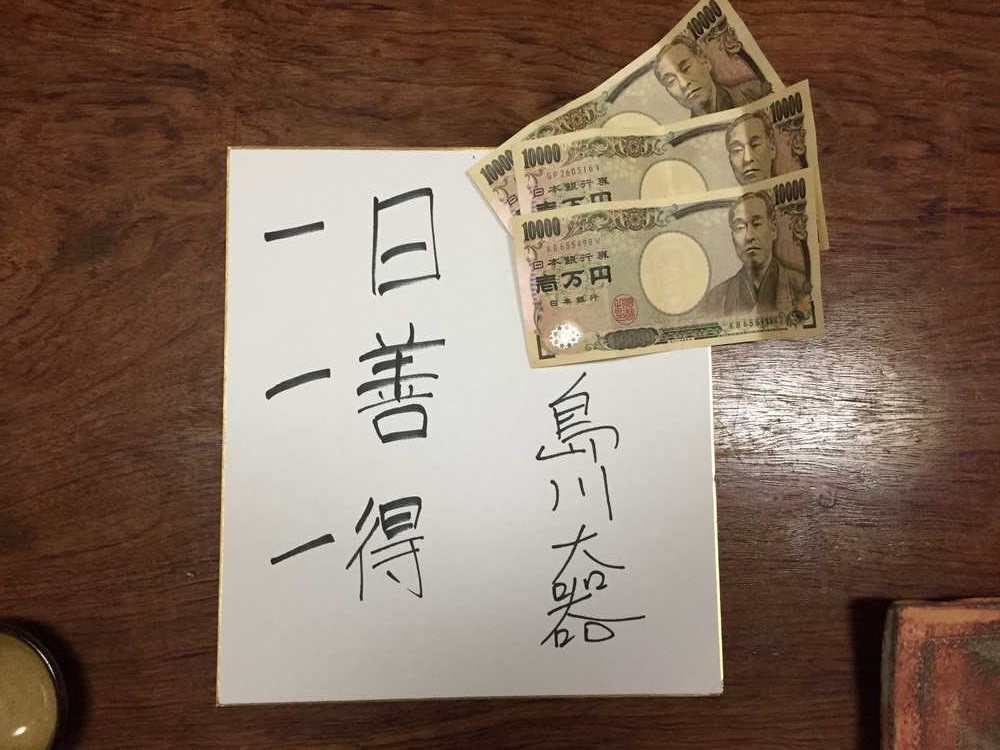 一日
一善
一得
島川大器
10000
10000
10000
10000
日本銀行券
壱万円
10000
10000
日本銀行券
壱万円
日本銀行